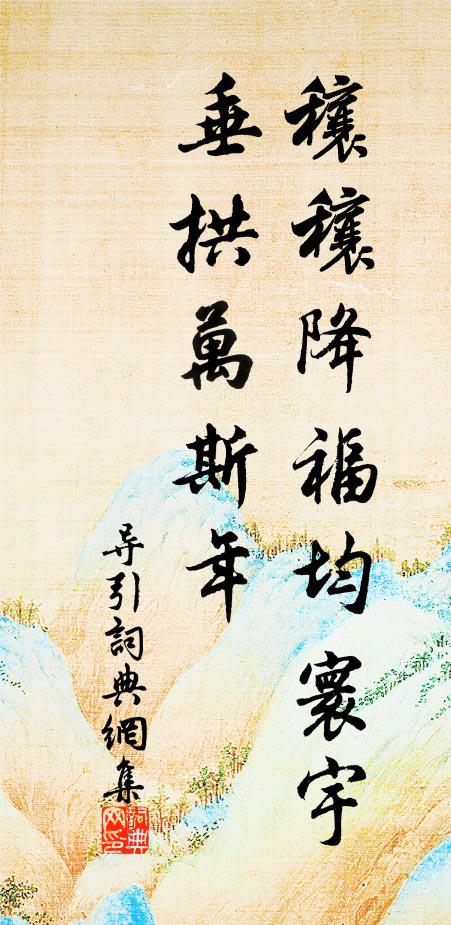 穰穰降福均寰宇
垂拱萬斯年
导引詞典網集
詞典
網印